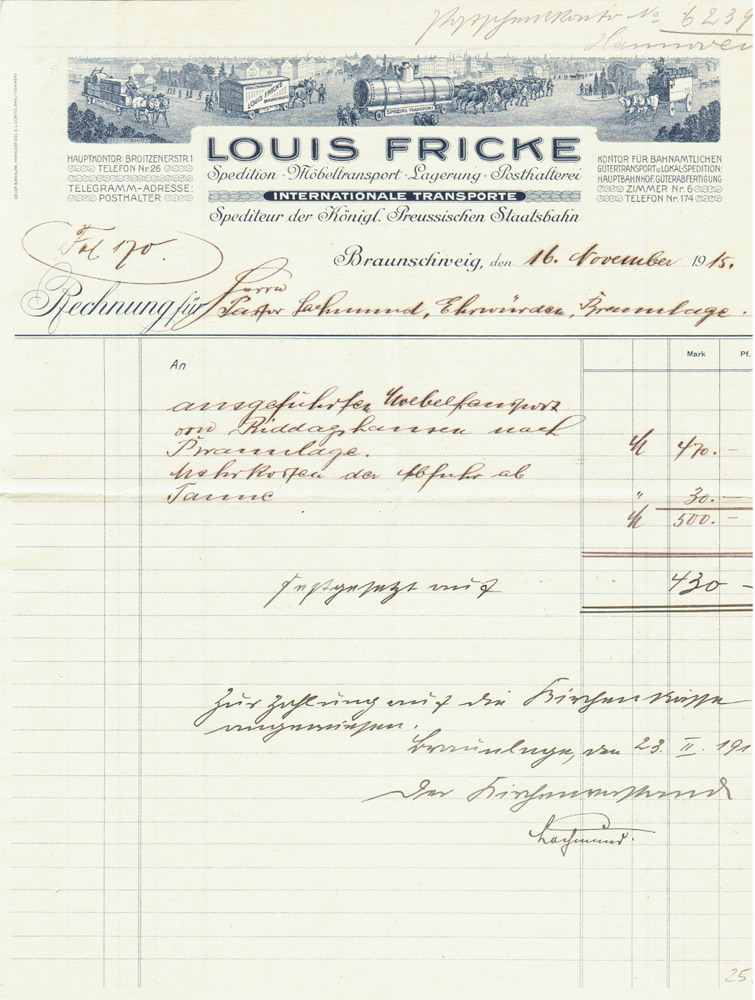 Postscheckkonto No 6239
Hannover
LOUIS FRICKE
SPECIAL TRANSPORT
LOUIS FRICKE
HAUPTKONTOR: BROITZENERSTR. 1
TELEFON Nr. 26
TELEGRAMM-ADRESSE:
POSTHALTER
Spedition · Möbeltransport · Lagerung · Posthalterei
INTERNATIONALE TRANSPORTE
Spediteur der Königl. Preussischen Staatsbahn
KONTOR FÜR BAHNAMTLICHEN
GÜTERTRANSPORT u. LOKAL-SPEDITION:
HAUPTBAHNHOF, GÜTERABFERTIGUNG
ZIMMER Nr. 6
TELEFON Nr. 174
Fol 170.
Braunschweig, den 16. November 1915.
Rechnung für Herrn
Pastor Lachmund, Ehrwürden, Braunlage.
Mark Pf.
An
ausgeführten Möbeltransport
von Riddagshausen nach
Braunlage. M 470.—
Mehrkosten der Abfuhr ab
Tanne " 30.—
M 500.—
festgesetzt auf 430 —
Zur Zahlung auf die Kirchenkasse
angewiesen.
Braunlage, den 23. II. 191
Der Kirchenvorstand
Lachmund.
25